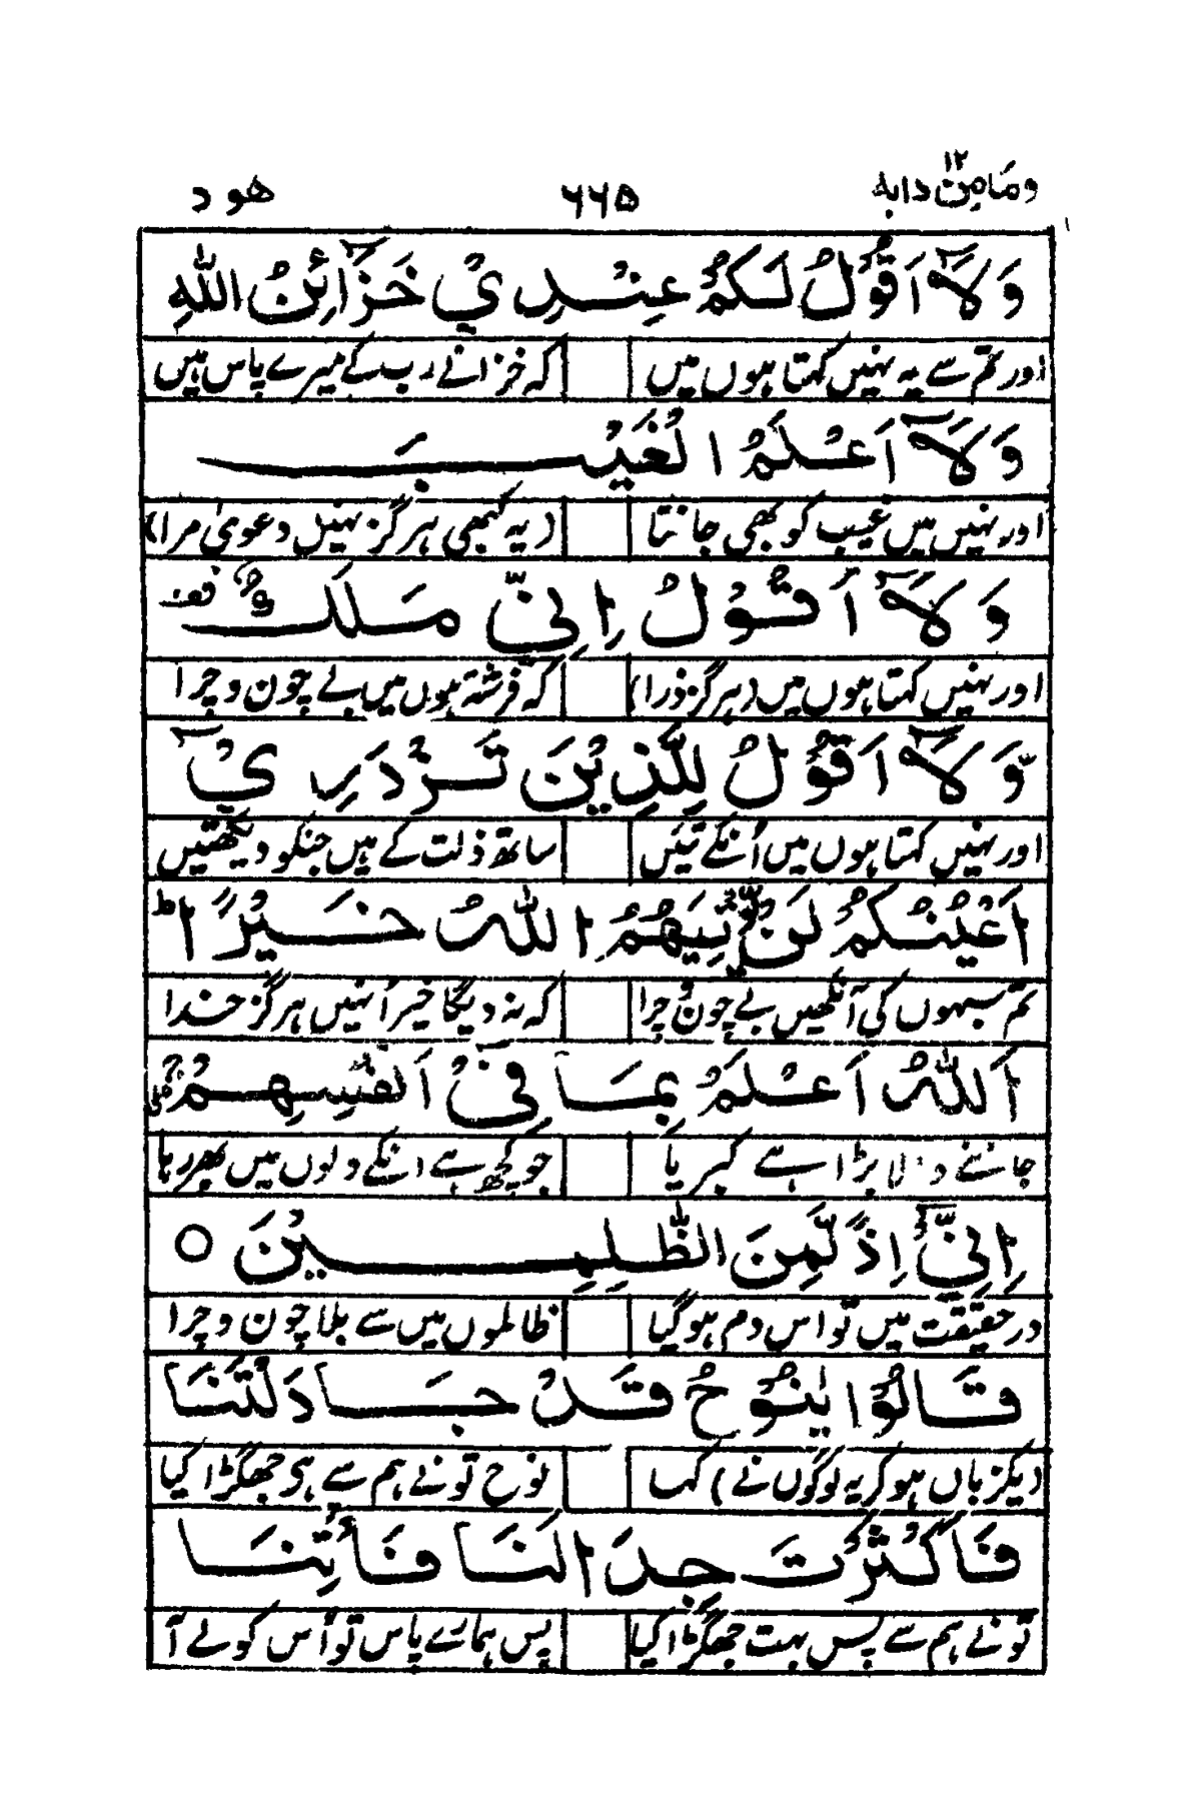 ومامن دابه ۱۲ ۶۶۵ هود
وَلَآ اَقُوْلُ لَكُمْ عِنْدِيْ خَزَآئِنُ اللّٰهِ
اور تم سے یہ نہیں کہتا ہوں میں کہ خزانے رب کے میرے پاس ہیں
وَلَآ اَعْلَمُ الْغَيْبَ
اور نہیں میں غیب کو بھی جانتا (یہ کبھی ہرگز نہیں دعویٰ مرا)
وَلَآ اَقُوْلُ اِنِّيْ مَلَكٌ
اور نہیں کہتا ہوں میں (ہرگز ذرا) کہ فرشتہ ہوں میں بے چون و چرا
وَّلَآ اَقُوْلُ لِلَّذِيْنَ تَزْدَرِيْٓ
اور نہیں کہتا ہوں میں اُنکے تئیں ساتھ ذلت کے ہیں جنکو دیکھتیں
اَعْيُنُكُمْ لَنْ يُّؤْتِيَهُمُ اللّٰهُ خَيْرًا ؕ
تم سبھوں کی آنکھیں بے چون چرا کہ نہ دیگا خیر اُنہیں ہرگز خدا
اَللّٰهُ اَعْلَمُ بِمَا فِيْٓ اَنْفُسِهِمْ
جاننے والا بڑا ہے کبریا جو کچھ ہے انکے دلوں میں بھر رہا
اِنِّيْٓ اِذًا لَّمِنَ الظّٰلِمِيْنَ ○
در حقیقت میں تو اس دم ہو گیا ظالموں میں سے بلا چون و چرا
قَالُوْا يٰنُوْحُ قَدْ جَادَلْتَنَا
(یکزباں ہو کر یہ لوگوں نے) کہا نوح تو نے ہم سے ہی جھگڑا کیا
فَاَكْثَرْتَ جِدَالَنَا فَاْتِنَا
تو نے ہم سے پس بہت جھگڑا کیا پس ہمارے پاس تو اُس کو لے آ